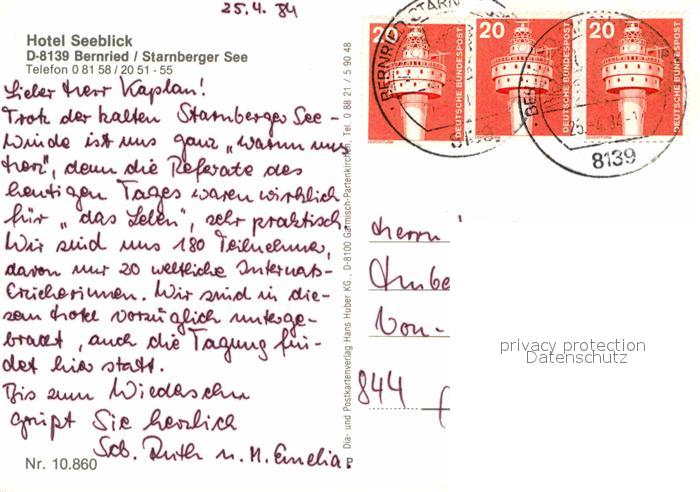 25.4.84
Hotel Seeblick
D-8139 Bernried / Starnberger See
Telefon 0 81 58 / 20 51 - 55
Lieber Herr Kaplan!
Trotz der kalten Starnberger See-
winde ist uns ganz „warm ums
Herz", denn die Referate des
heutigen Tages waren wirklich
für „das Leben", sehr praktisch.
Wir sind uns 180 Teilnehmer,
davon nur 20 weltliche Internats-
Erzieherinnen. Wir sind in die-
sem Hotel vorzüglich unterge-
bracht, auch die Tagung fin-
det hier statt.
Bis zum Wiedersehn
grüßt Sie herzlich
Sch. Ruth u. M. Emelia
Nr. 10.860
Dia- und Postkartenverlag Hans Huber KG., D-8100 Garmisch-Partenkirchen, Tel. 0 88 21 / 5 90 48
20
DEUTSCHE BUNDESPOST
20
DEUTSCHE BUNDESPOST
20
DEUTSCHE BUNDESPOST
BERNRIED STARN
8139
Herrn
Von-
844
privacy protection
Datenschutz